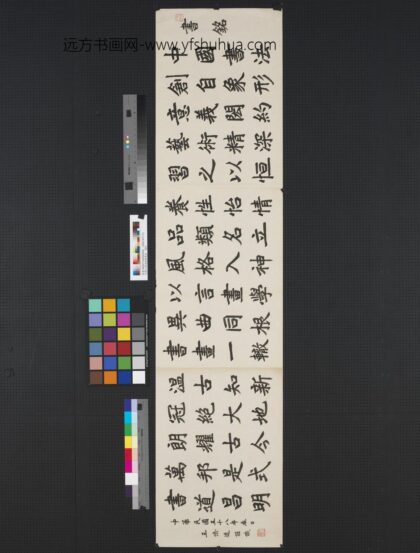 远方书画网-www.yfshuhua.com
書銘
中國書法
創自象形
意義閎約
藝術精深
習之以恒
養性怡情
品類名立
風格入神
以言畫學
異曲同根
書畫一轍
溫古知新
冠絕大地
朗耀古今
萬邦是式
書道昌明
中華民國十八年春日